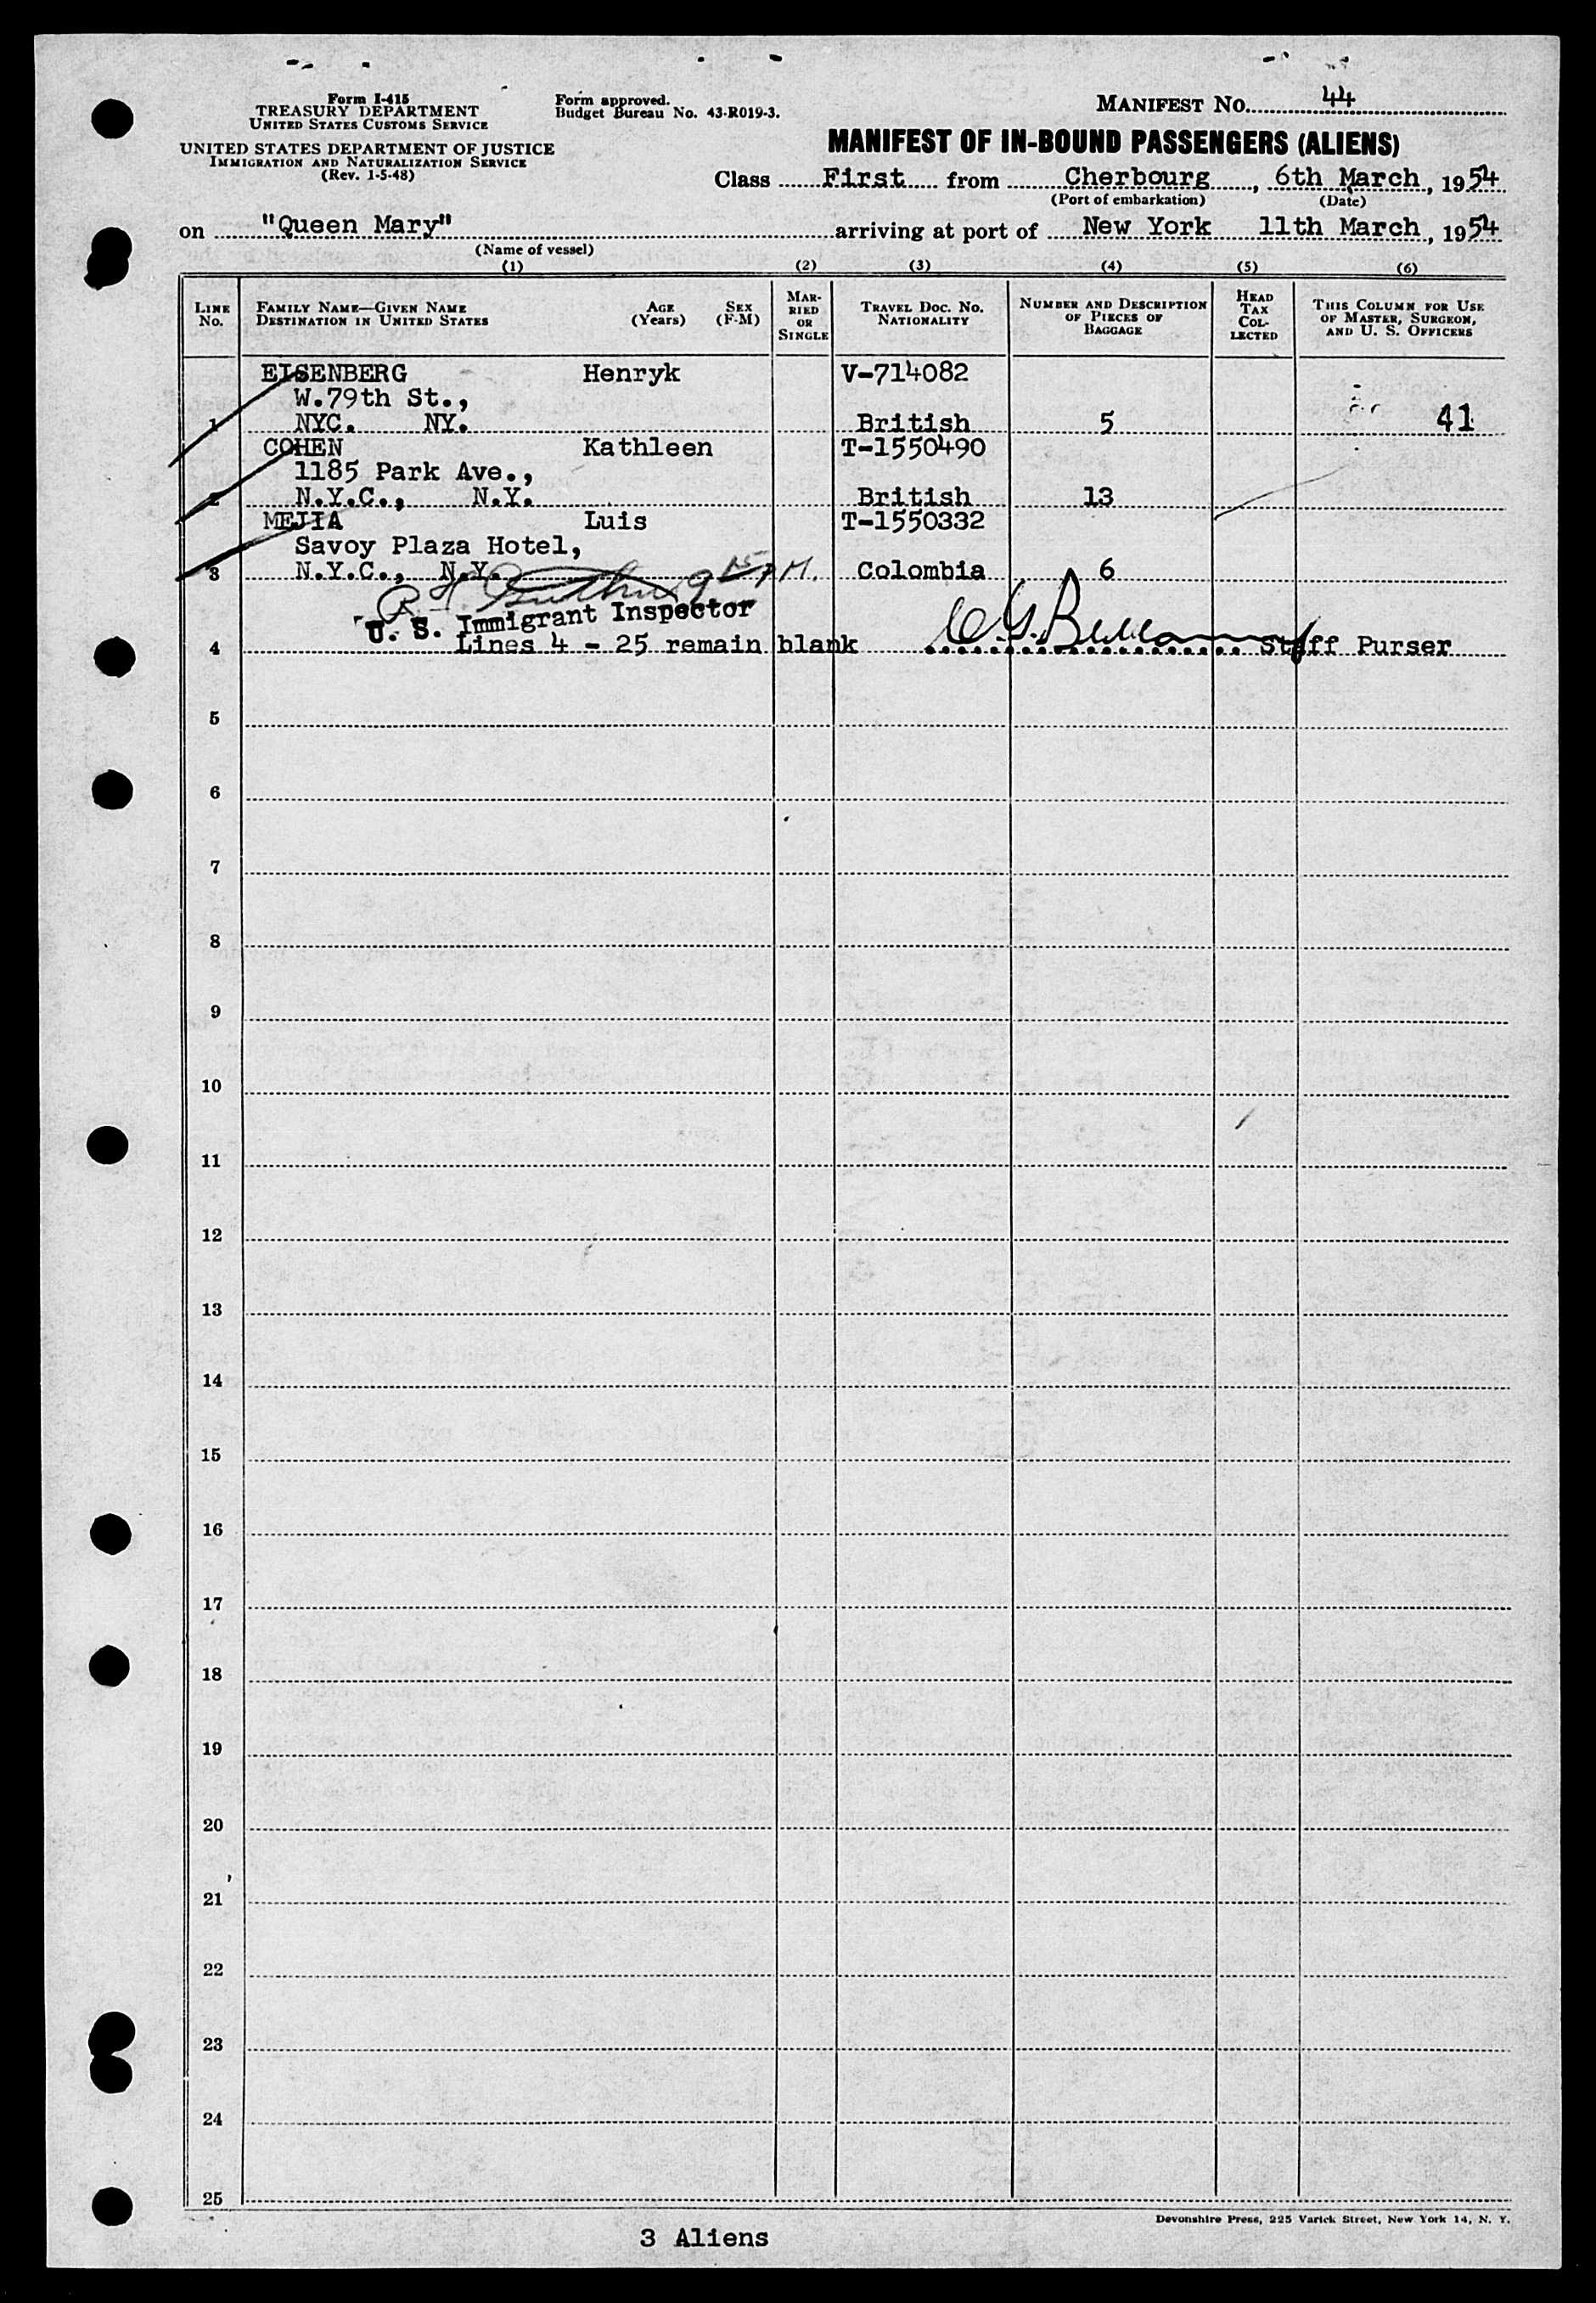 Form I-415
TREASURY DEPARTMENT
UNITED STATES CUSTOMS SERVICE
UNITED STATES DEPARTMENT OF JUSTICE
IMMIGRATION AND NATURALIZATION SERVICE
(Rev. 1-5-48)
Form approved.
Budget Bureau No. 43-R019-3.
MANIFEST NO. 44
MANIFEST OF IN-BOUND PASSENGERS (ALIENS)
Class First from Cherbourg, 6th March, 1954
(Port of embarkation) (Date)
on "Queen Mary" arriving at port of New York 11th March, 1954
(Name of vessel)
(1) (2) (3) (4) (5) (6)
LINE No. FAMILY NAME—GIVEN NAME DESTINATION IN UNITED STATES AGE (Years) SEX (F-M) MARRIED OR SINGLE TRAVEL DOC. NO. NATIONALITY NUMBER AND DESCRIPTION OF PIECES OF BAGGAGE HEAD TAX COLLECTED THIS COLUMN FOR USE OF MASTER, SURGEON, AND U. S. OFFICERS
EISENBERG Henryk V-714082
W.79th St.,
1 NYC. NY. British 5 41
COHEN Kathleen T-1550490
1185 Park Ave.,
2 N.Y.C., N.Y. British 13
MEJIA Luis T-1550332
Savoy Plaza Hotel,
3 N.Y.C., N.Y. Colombia 6
U. S. Immigrant Inspector
4 Lines 4 - 25 remain blank Staff Purser
5
6
7
8
9
10
11
12
13
14
15
16
17
18
19
20
21
22
23
24
25
Devonshire Press, 225 Varick Street, New York 14, N. Y.
3 Aliens